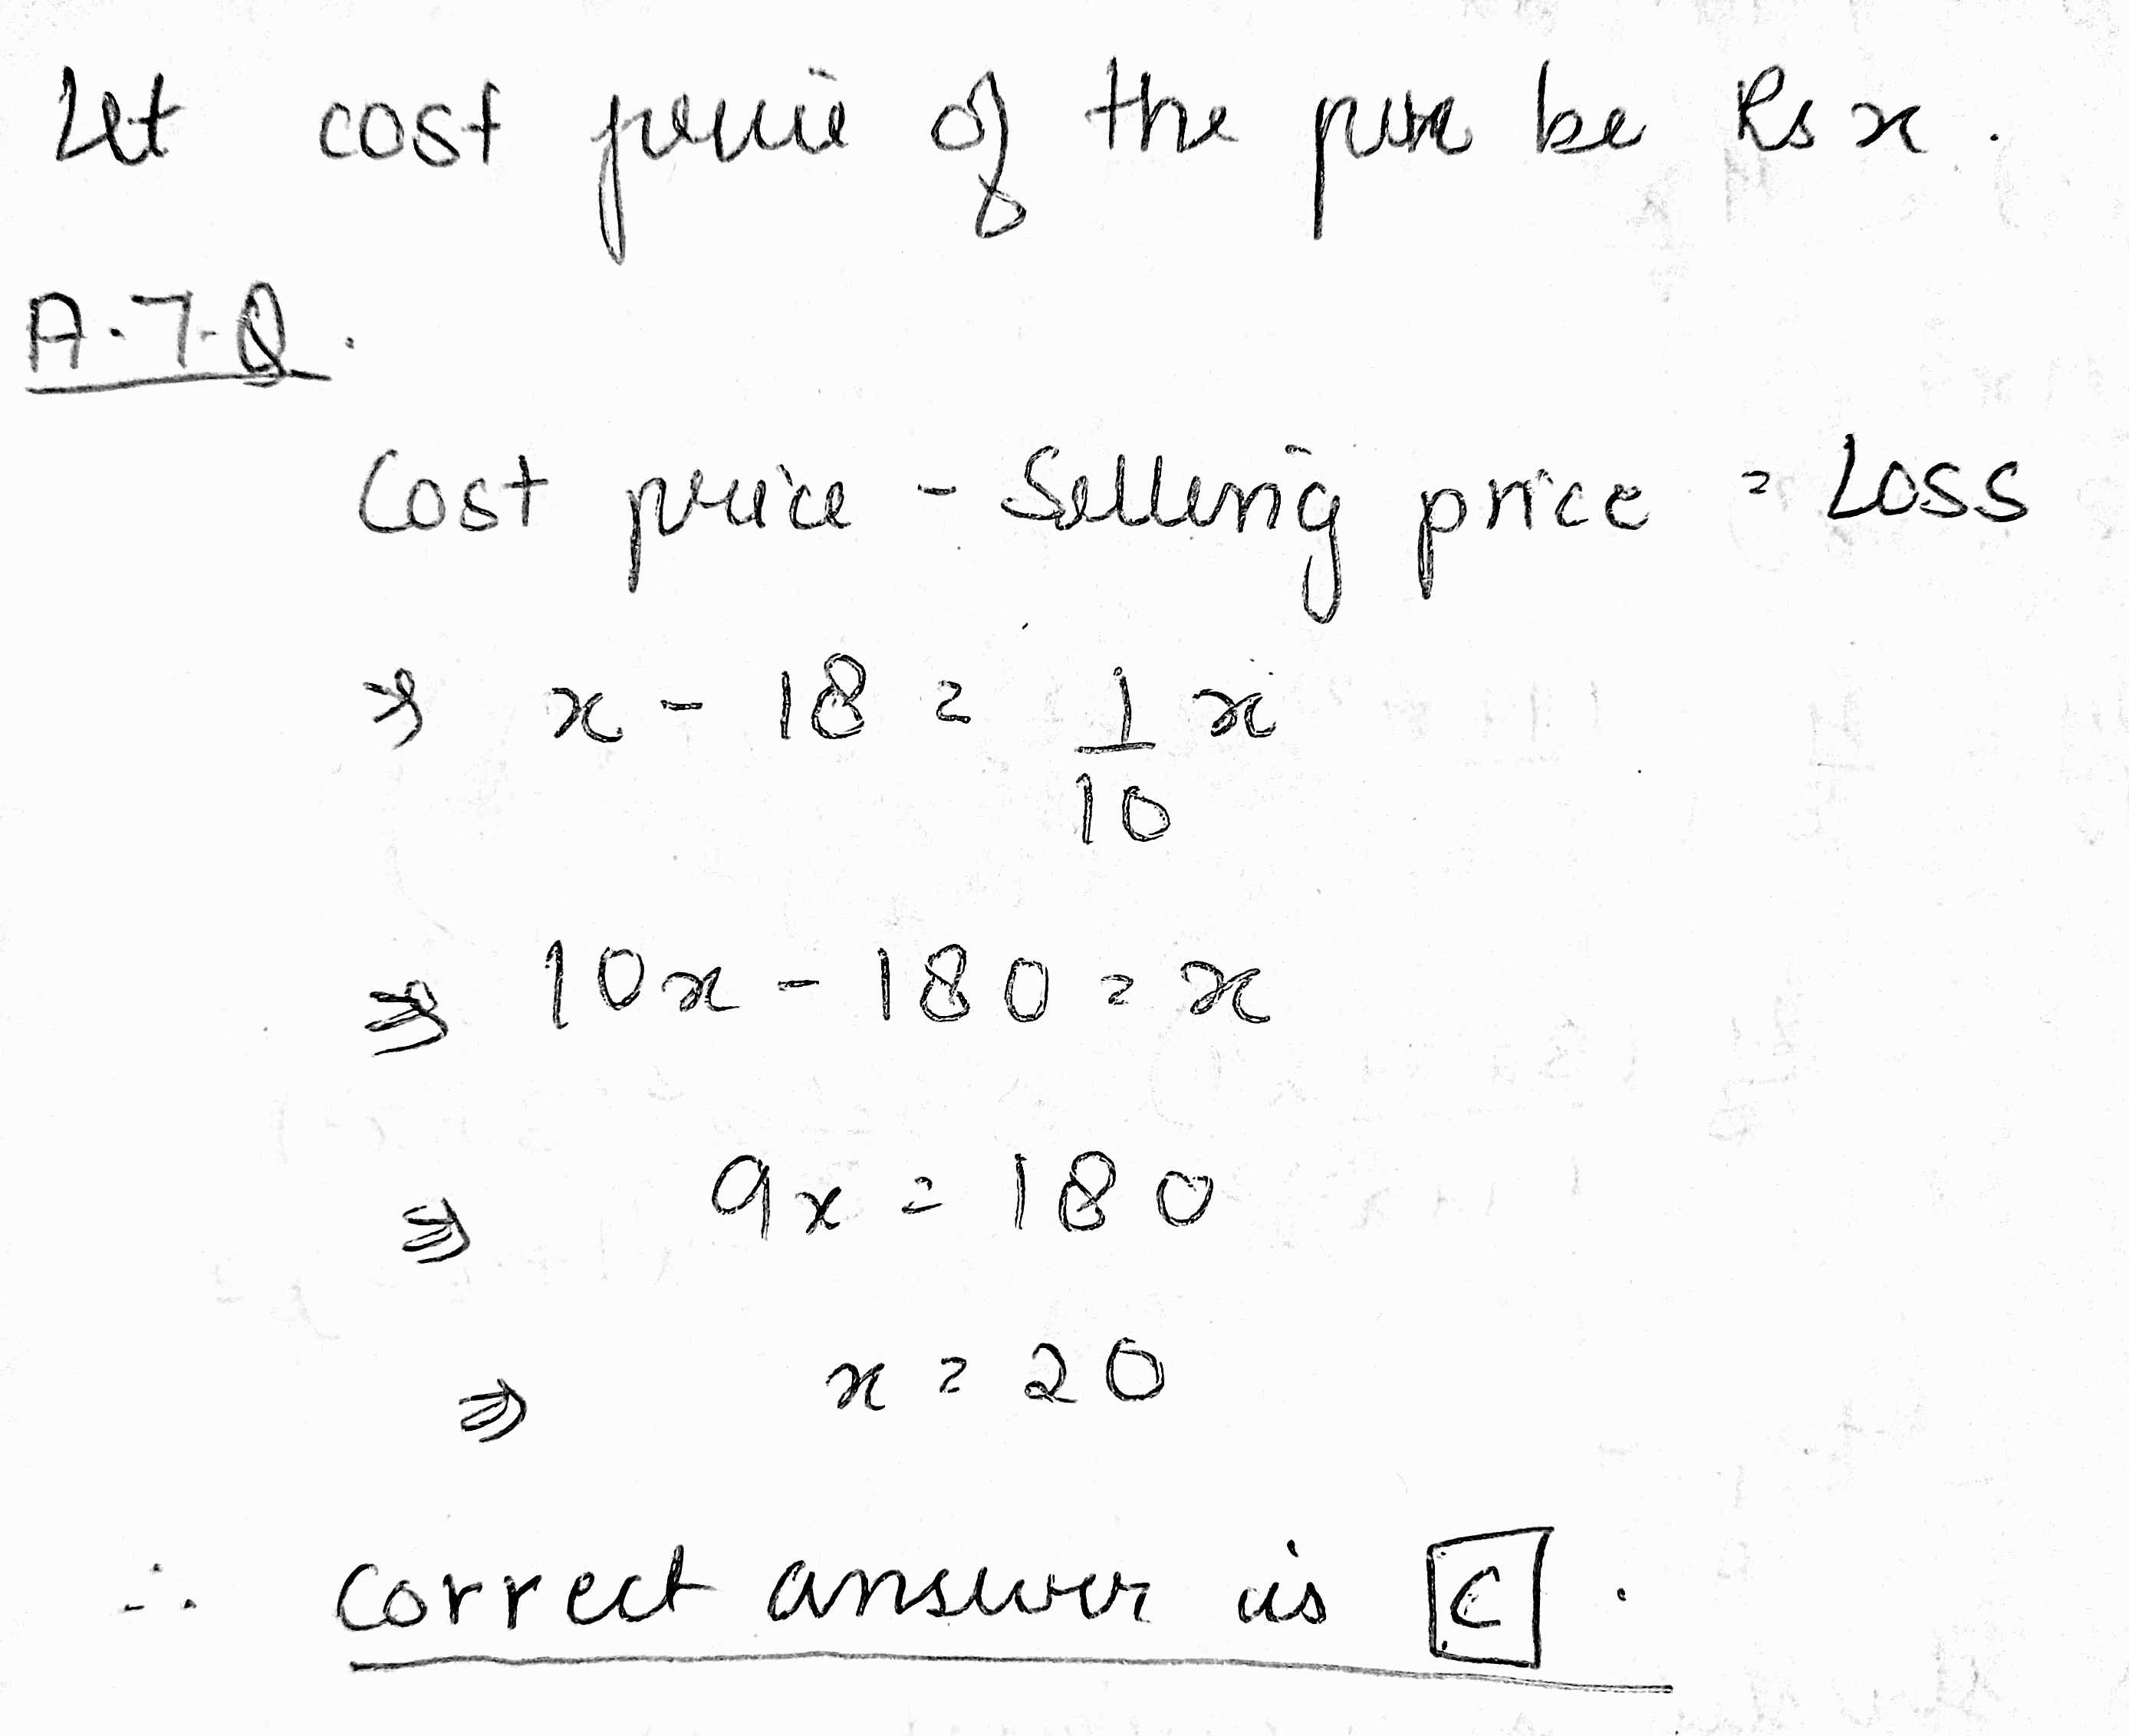 Let cost price of the pen be Rs x.
A.T.Q.
Cost price - Selling price = Loss
⇒ x - 18 = 1/10 x
⇒ 10x - 180 = x
⇒ 9x = 180
⇒ x = 20
∴ correct answer is C.